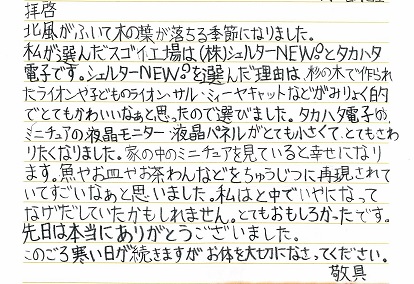 拝啓
北風がふいて木の葉が落ちる季節になりました。
私が選んだスゴイ工場は(株)シェルターNEW°とタカハタ
電子です。シェルターNEW°を選んだ理由は、杉の木で作られ
たライオンや子どものライオン・サル・ミィーヤキャットなどがみりょく的
でとてもかわいいなぁと思ったので選びました。タカハタ電子の、
ミニチュアの液晶モニター・液晶パネルがとても小さくて、とてもさわ
りたくなりました。家の中のミニチュアを見ていると幸せになり
ます。魚やお皿やお茶わんなどをちゅうじつに再現されて
いてすごいなぁと思いました。私はと中でいやになって
なげだしていたかもしれません。とてもおもしろかったです。
先日は本当にありがとうございました。
このごろ寒い日が続きますがお体を大切になさってください。
敬具